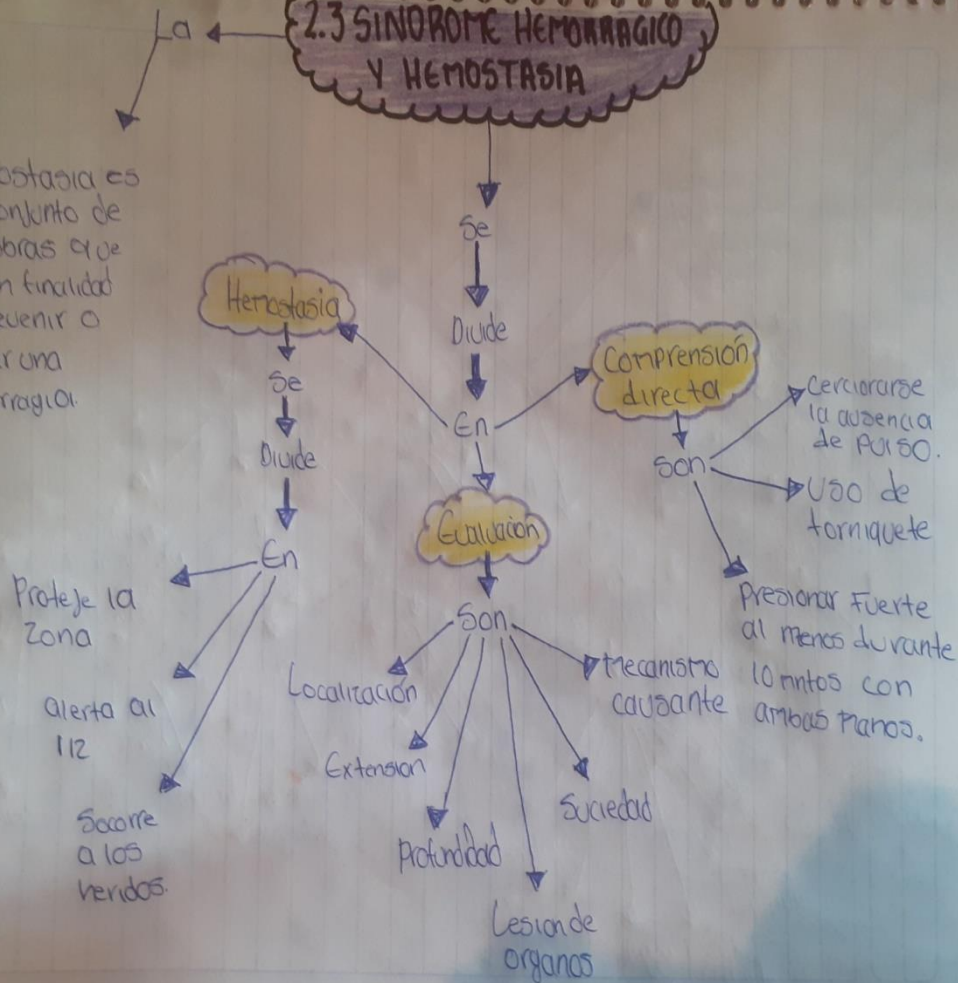 2.3 SINDROME HEMORRAGICO
Y HEMOSTASIA
La
ostasia es
onjunto de
obras que
n finalidad
evenir o
r una
rragia.
Se
Divide
En
Hemostasia
Se
Divide
En
Proteje la
zona
alerta al
112
Socorre
a los
heridos.
Evaluación
Son
Localización
Extension
Profundidad
Lesion de
organos
Suciedad
Mecanismo
causante
Comprensión
directa
Son
Cerciorarse
la ausencia
de pulso.
Uso de
torniquete
Presionar Fuerte
al menos durante
10 mntos con
ambas manos.